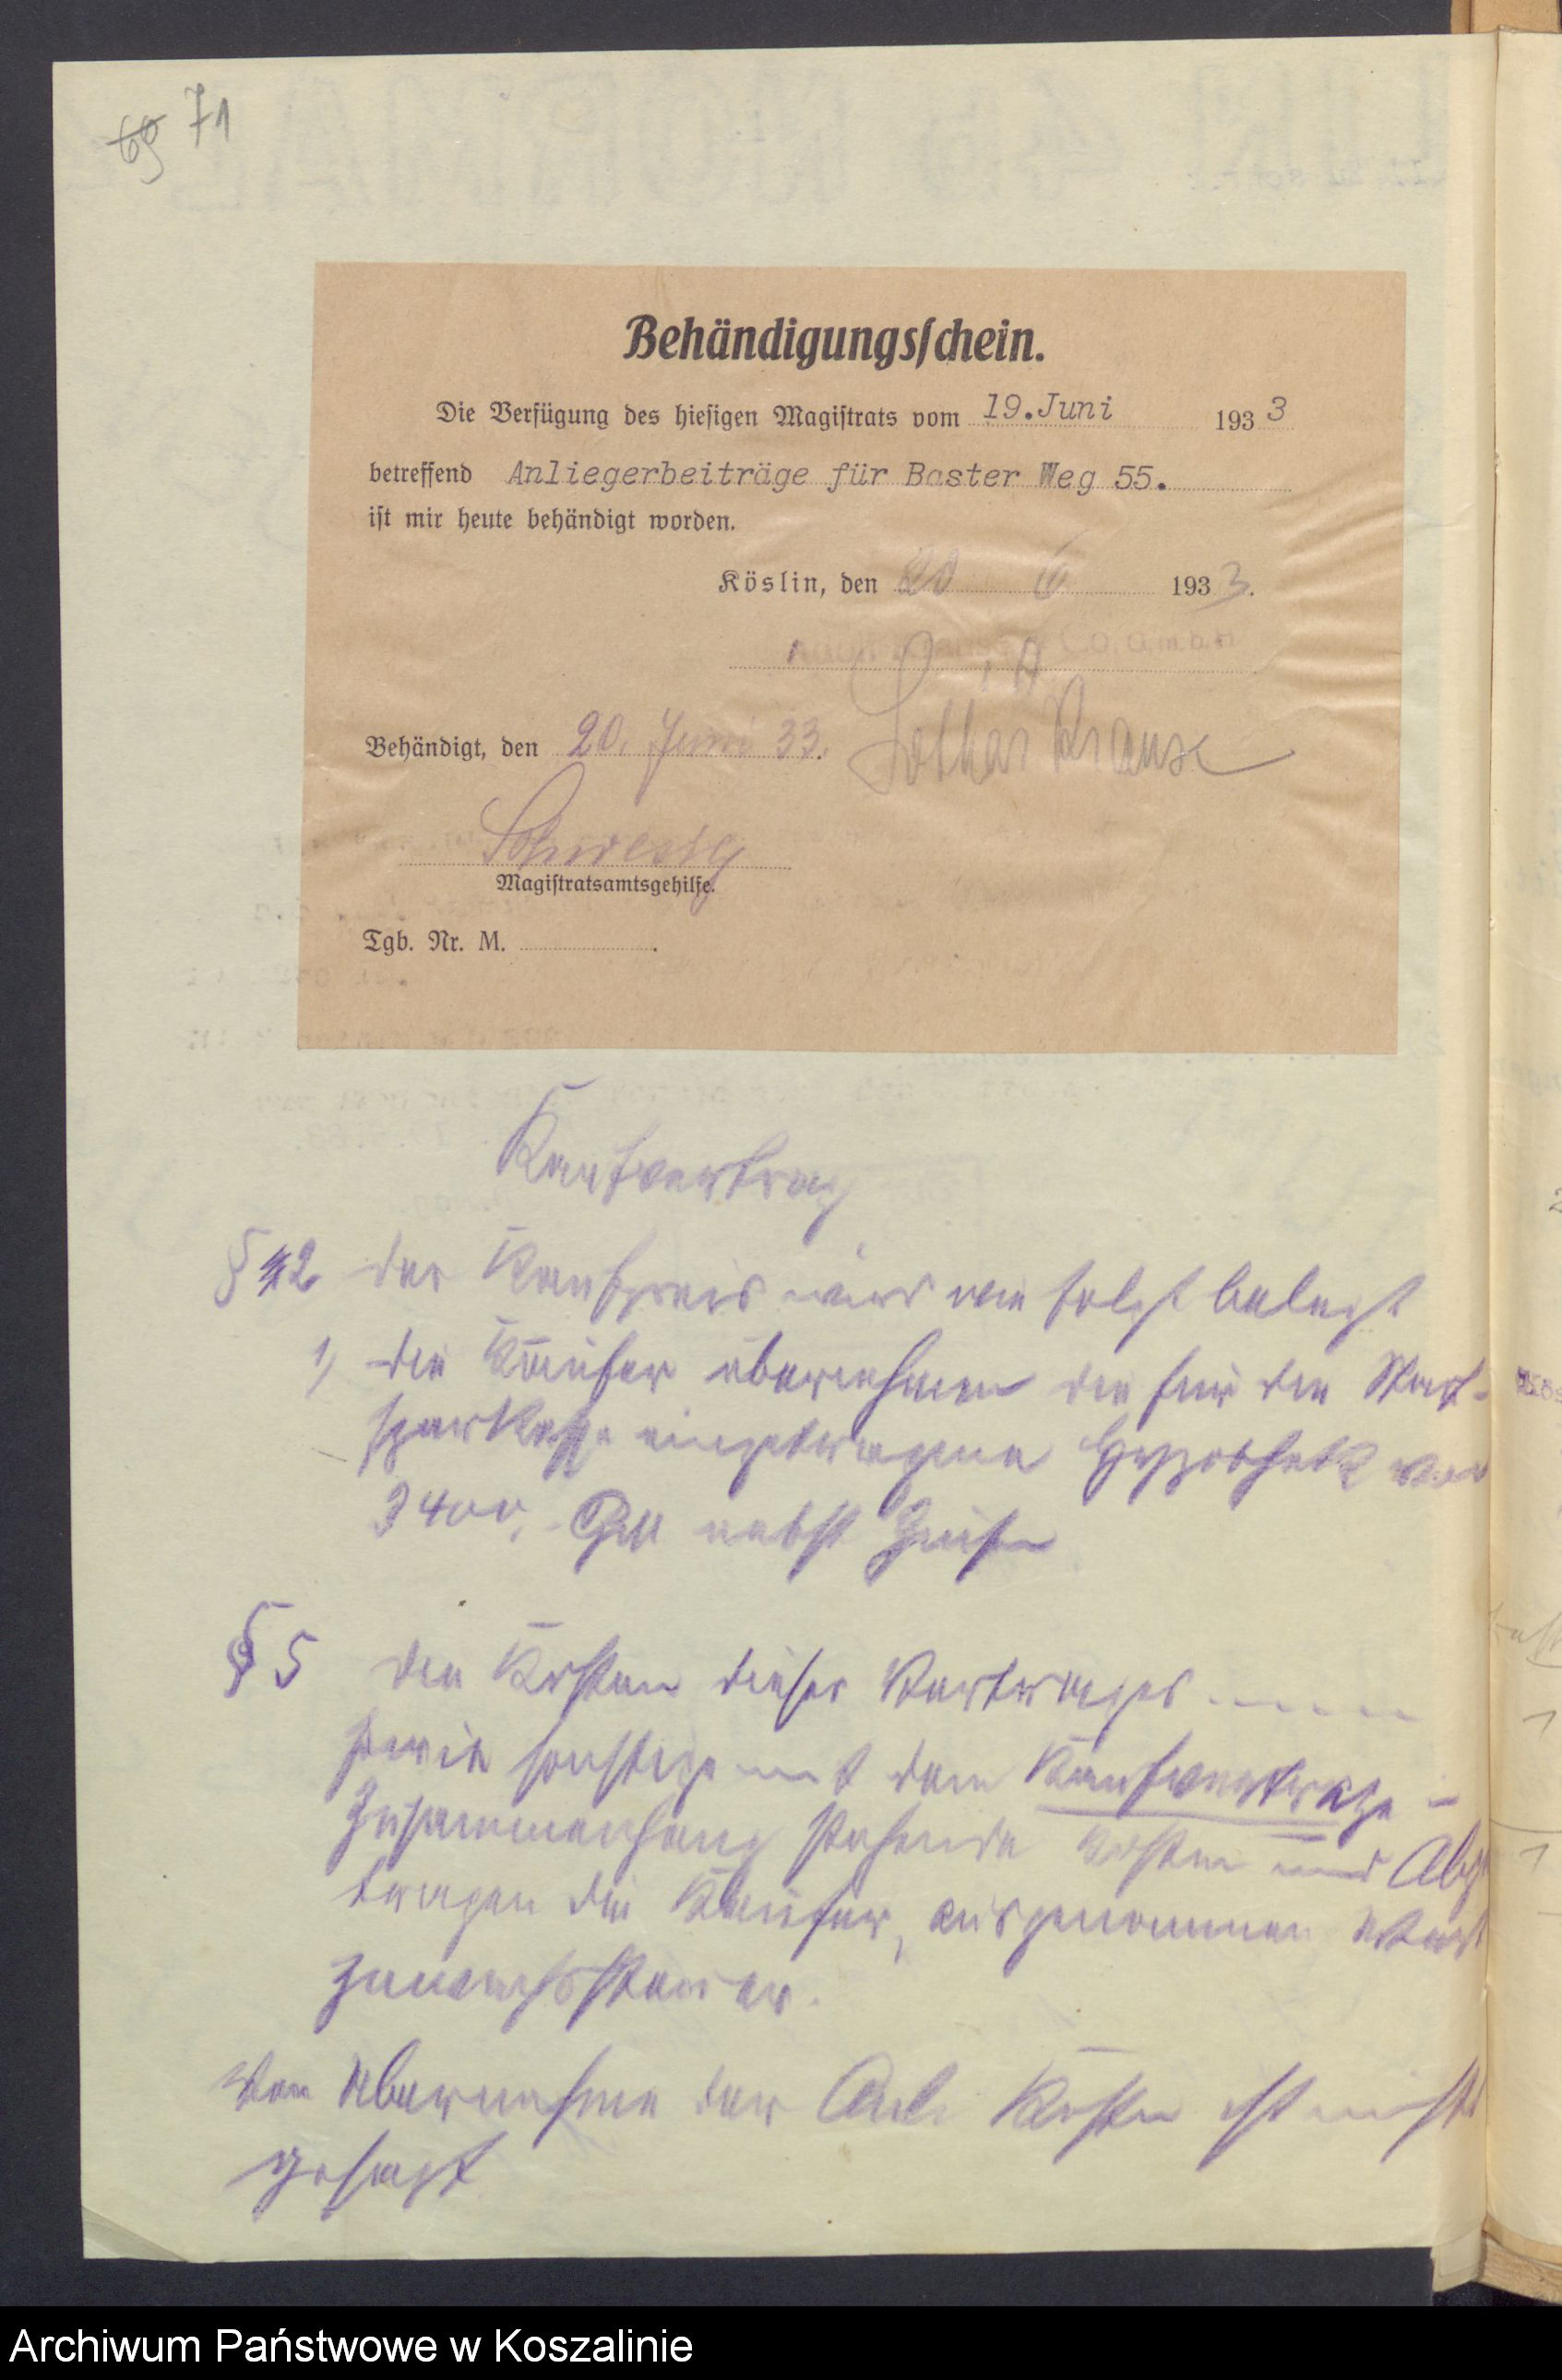 69 71
Behändigungsschein.
Die Verfügung des hiesigen Magistrats vom 19.Juni 1933
betreffend Anliegerbeiträge für Baster Weg 55.
ist mir heute behändigt worden.
Köslin, den 20 6 1933.
Lothar Krause
Behändigt, den 20. Juni 33.
Schwessig
Magistratsamtsgehilfe.
Tgb. Nr. M. .
Kaufvertrag
§ 2 der Kaufpreis wird wie folgt belegt
1) die Käufer übernehmen die für die Stadt-
sparkasse eingetragene Hypothek von
3400,- GM nebst Zinsen
§ 5 die Kosten dieses Vertrages
sowie sonstige mit dem Kaufvertrage
Zusammenhang stehende Kosten und
tragen die Käufer, ausgenommen Wert
zuwachssteuer.
Von Übernahme der Anl. Kosten ist nichts
gesagt
Archiwum Państwowe w Koszalinie